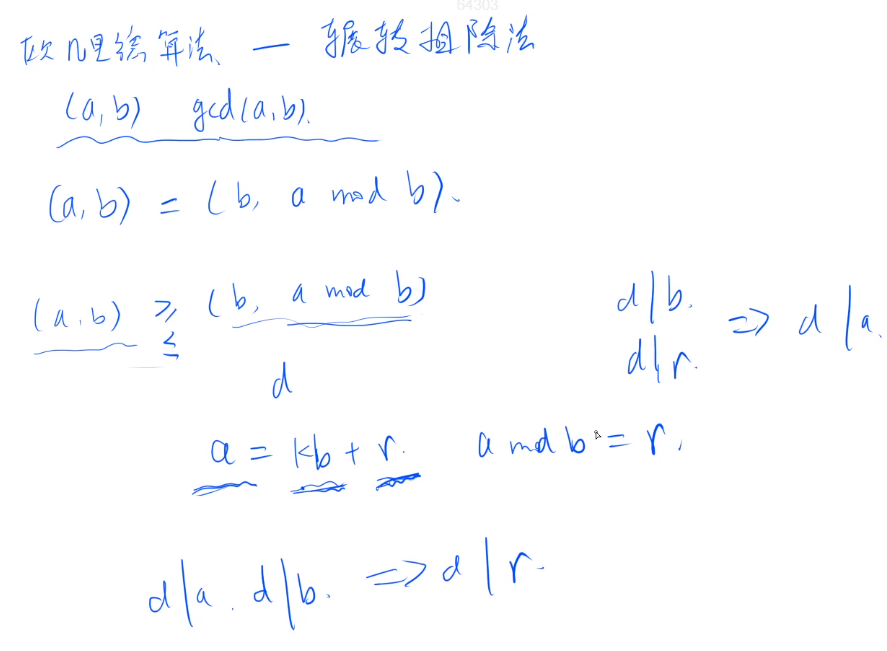 64303
欧几里得算法 — 辗转相除法
(a,b) gcd(a,b).
(a,b) = (b, a mod b).
(a,b) ≥ ≤ (b, a mod b)
d|b. d|r. => d|a.
d
a = kb + r. a mod b = r.
d|a. d|b. => d|r.